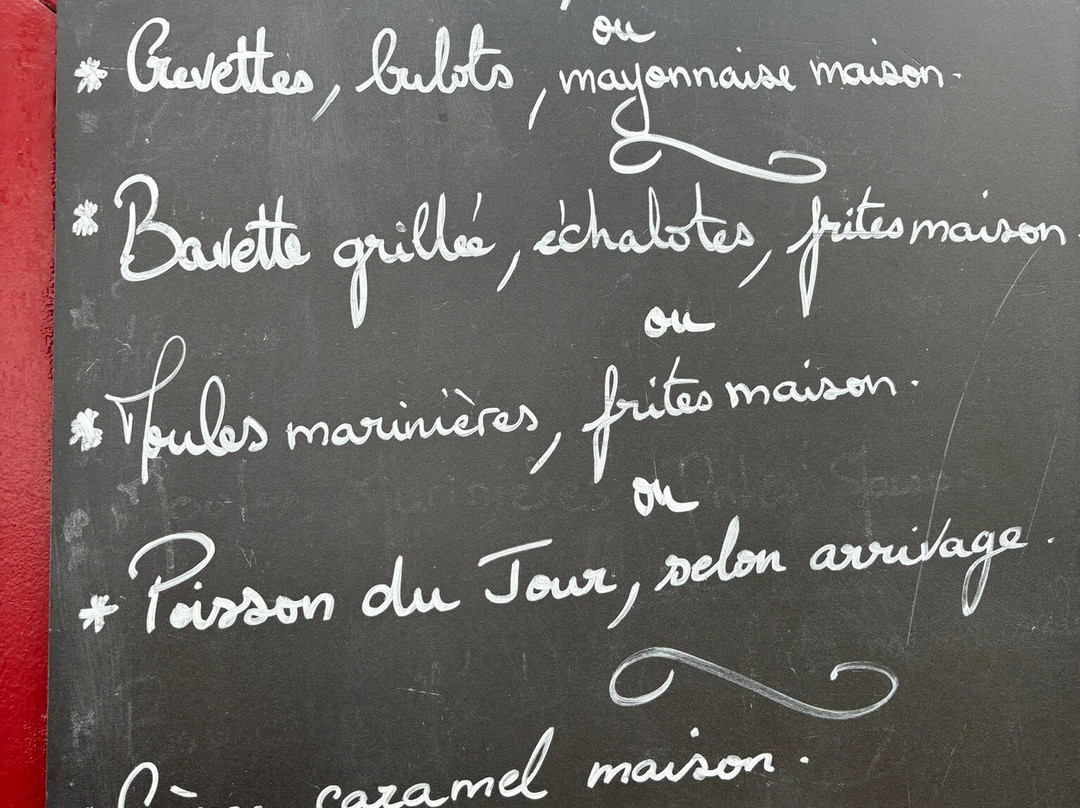 ou
* Crevettes, bulots, mayonnaise maison.
* Bavette grillée, échalotes, frites maison.
ou
* Moules marinières, frites maison.
ou
* Poisson du Jour, selon arrivage.
caramel maison.